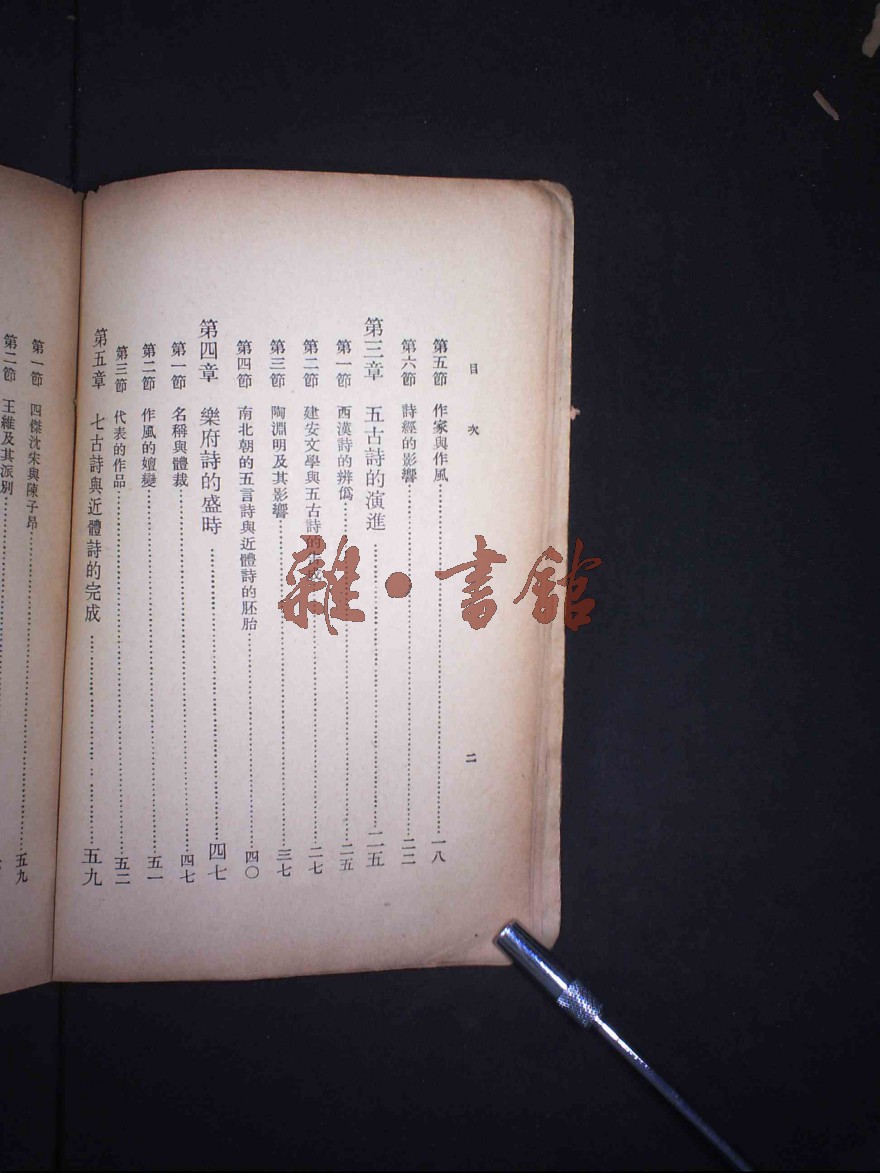 目次
二
第五節 作家與作風⋯⋯一八
第六節 詩經的影響⋯⋯二二
第三章 五古詩的演進⋯⋯二五
第一節 西漢詩的辨僞⋯⋯二五
第二節 建安文學與五古詩的⋯⋯二七
第三節 陶淵明及其影響⋯⋯三七
第四節 南北朝的五言詩與近體詩的胚胎⋯⋯四〇
第四章 樂府詩的盛時⋯⋯四七
第一節 名稱與體裁⋯⋯四七
第二節 作風的嬗變⋯⋯五一
第三節 代表的作品⋯⋯五二
第五章 七古詩與近體詩的完成⋯⋯五九
第一節 四傑沈宋與陳子昂⋯⋯五九
第二節 王維及其派別⋯⋯
雜·書館